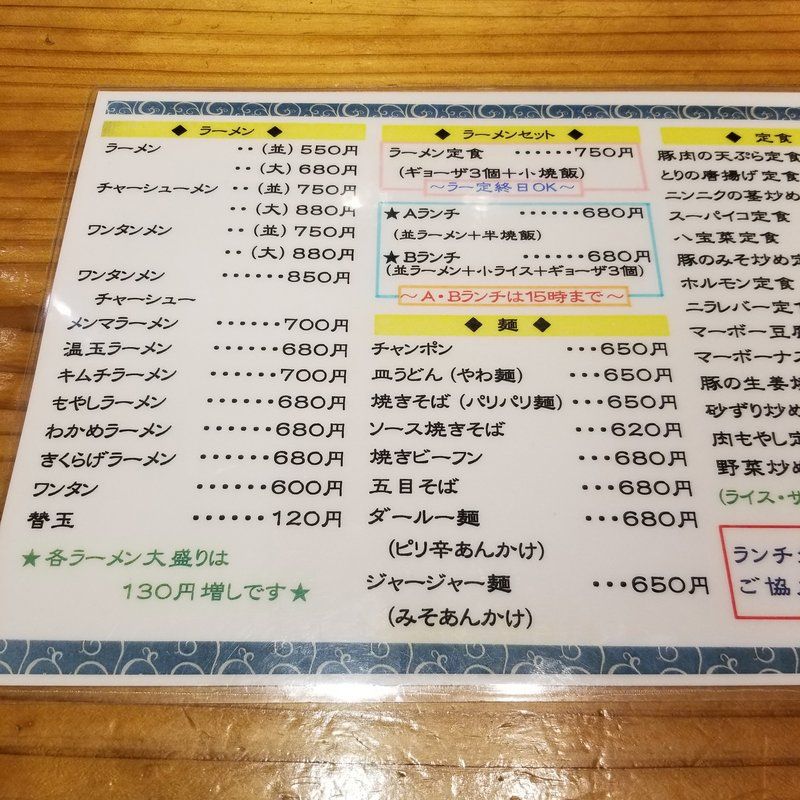 ◆ ラーメン ◆
ラーメン ‥(並)550円
‥(大)680円
チャーシューメン ‥(並)750円
‥(大)880円
ワンタンメン ‥(並)750円
‥(大)880円
ワンタンメン ‥‥‥850円
チャーシュー
メンマラーメン ‥‥‥700円
温玉ラーメン ‥‥‥680円
キムチラーメン ‥‥‥700円
もやしラーメン ‥‥‥680円
わかめラーメン ‥‥‥680円
きくらげラーメン ‥‥‥680円
ワンタン ‥‥‥600円
替玉 ‥‥‥120円
★各ラーメン大盛りは
130円増しです★
◆ ラーメンセット ◆
ラーメン定食 ‥‥‥750円
(ギョーザ3個+小焼飯)
～ラー定終日OK～
★Aランチ ‥‥‥680円
(並ラーメン+半焼飯)
★Bランチ ‥‥‥680円
(並ラーメン+小ライス+ギョーザ3個)
～A・Bランチは15時まで～
◆ 麺 ◆
チャンポン …650円
皿うどん(やわ麺) …650円
焼きそば(パリパリ麺)…650円
ソース焼きそば …620円
焼きビーフン …680円
五目そば …680円
ダールー麺 …680円
(ピリ辛あんかけ)
ジャージャー麺 …650円
(みそあんかけ)
◆ 定食
豚肉の天ぷら定食
とりの唐揚げ定食
ニンニクの茎炒め
スーパイコ定食
八宝菜定食
豚のみそ炒め定
ホルモン定食
ニラレバー定食
マーボー豆腐
マーボーナス
豚の生姜焼
砂ずり炒め
肉もやし定
野菜炒め
(ライス・サ
ランチ
ご協